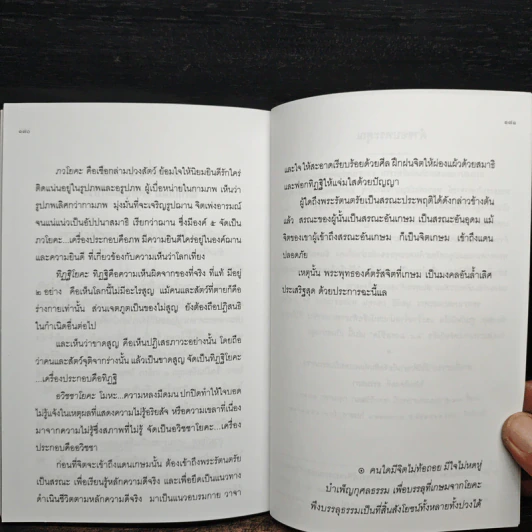 ๑๘๐
ภวโยคะ คือเชือกล่ามปวงสัตว์ ย้อมใจให้นิยมยินดีรักใคร่
ติดแน่นอยู่ในรูปภพและอรูปภพ ผู้เบื่อหน่ายในกามภพ เห็นว่า
รูปภพเลิศกว่ากามภพ มุ่งมั่นที่จะเจริญรูปฌาน จิตเพ่งอารมณ์
จนแน่แน่วเป็นอัปปนาสมาธิ เรียกว่าฌาน ซึ่งมีองค์ ๕ จัดเป็น
ภวโยคะ...เครื่องประกอบคือภพ มีความยินดีใคร่อยู่ในองค์ฌาน
และความยินดี ที่เกี่ยวข้องกับความเห็นว่าโลกเที่ยง
ทิฏฐิโยคะ ทิฏฐิคือความเห็นผิดจากของที่จริง ที่แท้ มีอยู่
๒ อย่าง คือเห็นโลกนี้ไม่มีอะไรสูญ แม้คนและสัตว์ที่ตายก็คือ
ร่างกายเท่านั้น ส่วนเจตภูตเป็นของไม่สูญ ยังต้องถือปฏิสนธิ
ในกำเนิดอื่นต่อไป
และเห็นว่าขาดสูญ คือเห็นปฏิเสธภาวะอย่างนั้น โดยถือ
ว่าคนและสัตว์จุติจากร่างนั้น แล้วเป็นขาดสูญ จัดเป็นทิฏฐิโยคะ
...เครื่องประกอบคือทิฏฐิ
อวิชชาโยคะ โมหะ...ความหลงมืดมน ปกปิดทำให้ใจบอด
ไม่รู้แจ้งในเหตุผลที่แสดงความไม่รู้อริยสัจ หรือความเขลาที่เนื่อง
มาจากความไม่รู้ซึ่งสภาพที่ไม่รู้ จัดเป็นอวิชชาโยคะ...เครื่อง
ประกอบคืออวิชชา
ก่อนที่จิตจะเข้าถึงแดนเกษมนั้น ต้องเข้าถึงพระรัตนตรัย
เป็นสรณะ เพื่อเรียนรู้หลักความดีจริง และเพื่อยึดเป็นแนวทาง
ดำเนินชีวิตตามหลักความดีจริง มาเป็นแนวอบรมกาย วาจา
๑๘๑
และใจ ให้สะอาดเรียบร้อยด้วยศีล ฝึกฝนจิตให้ผ่องแผ้วด้วยสมาธิ
และฟอกทิฏฐิให้แจ่มใสด้วยปัญญา
ผู้ใดถึงพระรัตนตรัยเป็นสรณะประพฤติได้ดังกล่าวข้างต้น
แล้ว สรณะของผู้นั้นเป็นสรณะอันเกษม เป็นสรณะอันอุดม แม้
จิตของเขาผู้เข้าถึงสรณะอันเกษม ก็เป็นจิตเกษม เข้าถึงแดน
ปลอดภัย
เหตุนั้น พระพุทธองค์ตรัสจิตที่เกษม เป็นมงคลอันล้ำเลิศ
ประเสริฐสุด ด้วยประการฉะนี้แล
๏ คนใดมีจิตไม่ท้อถอย มีใจไม่หดหู่
บำเพ็ญกุศลธรรม เพื่อบรรลุที่เกษมจากโยคะ
พึงบรรลุธรรมเป็นที่สิ้นสังโยชน์ทั้งหลายทั้งปวงได้